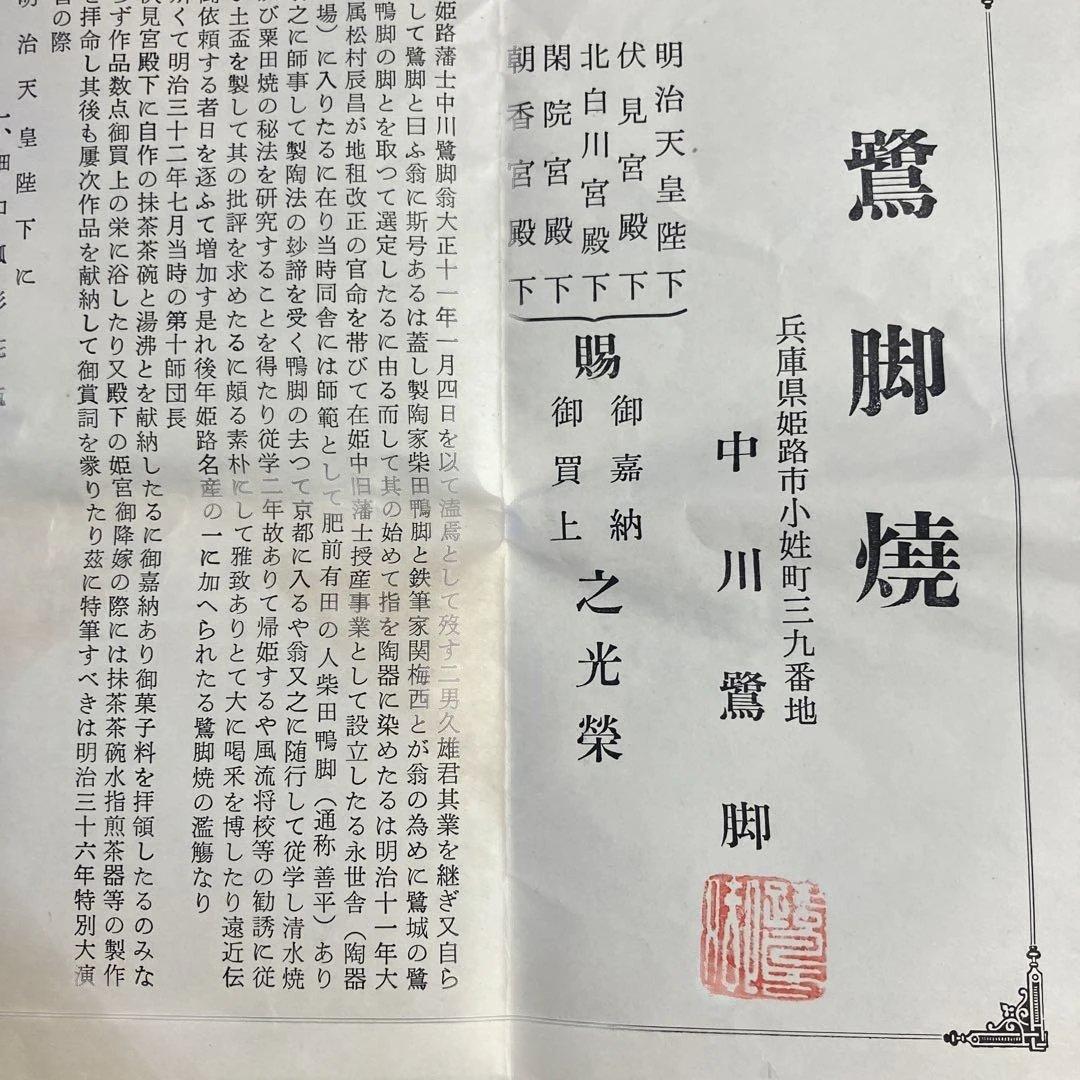 鷺脚燒
兵庫県姫路市小姓町三九番地
中川鷺脚
明治天皇陛下
伏見宮殿下
北白川宮殿下
閑院宮殿下
朝香宮殿下
賜
御嘉納
御買上
之光榮
姫路藩士中川鷺脚翁大正十一年一月四日を以て溘焉として歿す二男久雄君其業を継ぎ又自ら
して鷺脚と曰ふ翁に斯号あるは蓋し製陶家柴田鴨脚と鉄筆家関梅西とが翁の為めに鷺城の鷺
鴨脚の脚とを取つて選定したるに由る而して其の始めて指を陶器に染めたるは明治十一年大
属松村辰昌が地租改正の官命を帯びて在姫中旧藩士授産事業として設立したる永世舎（陶器
場）に入りたるに在り当時同舎には師範として肥前有田の人柴田鴨脚（通称善平）あり
之に師事して製陶法の妙諦を受く鴨脚の去つて京都に入るや翁又之に随行して従学し清水焼
び粟田焼の秘法を研究することを得たり従学二年故ありて帰姫するや風流将校等の勧誘に従
土盃を製して其の批評を求めたるに頗る素朴にして雅致ありとて大に喝釆を博したり遠近伝
依頼する者日を逐ふて増加す是れ後年姫路名産の一に加へられたる鷺脚焼の濫觴なり
くて明治三十二年七月当時の第十師団長
伏見宮殿下に自作の抹茶茶碗と湯沸とを献納したるに御嘉納あり御菓子料を拝領したるのみな
らず作品数点御買上の栄に浴したり又殿下の姫宮御降嫁の際には抹茶茶碗水指煎茶器等の製作
を拝命し其後も屢次作品を献納して御賞詞を蒙りたり茲に特筆すべきは明治三十六年特別大演
習の際
明治天皇陛下に
一、